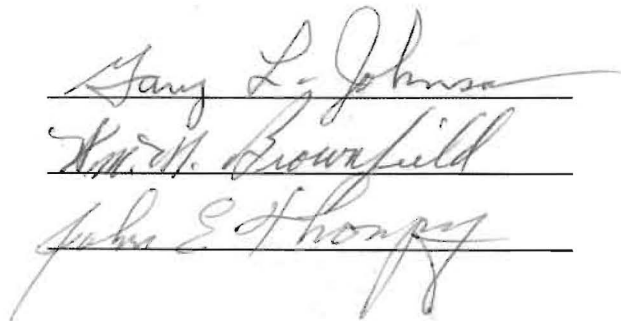 Gary L. Johnson
Wm. N. Brownfield
John E Thompy